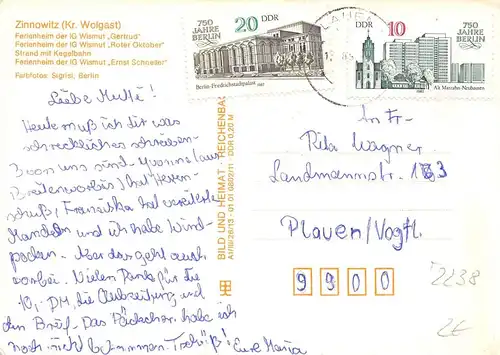 Zinnowitz (Kr. Wolgast)
Ferienheim der IG Wismut „Gertrud"
Ferienheim der IG Wismut „Roter Oktober"
Strand mit Kegelbahn
Ferienheim der IG Wismut „Ernst Schneller"
Farbfotos: Sigrisi, Berlin
750 JAHRE BERLIN
20 DDR
Berlin-Friedrichstadtpalast 1987
DDR 10
750 JAHRE BERLIN
Alt Marzahn-Neubauten
1987
Liebe Mutti!
Heute muß ich dir was
schreckliches schreiben.
3 von uns sind. Yvonne (aus
Breitenworbis) hat Hexen-
schuß, Franziska hat vereiterte
Mandeln und ich habe Wind-
pocken. Aber das geht auch
vorbei. Vielen Dank für die
10,- DM, die Aubzeitung und
den Brief. Das Päckchen habe ich
noch nicht bekommen. Tschüß! Eure Maria
BILD UND HEIMAT REICHENBACH
A1/B/26/13 01 01 0802/11 DDR 0,20 M
An Fr.
Rita Wagner
Landmannstr. 163
Plauen/Vogtl.
9900
2238
2€